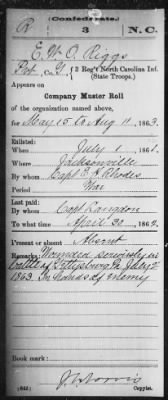 (Confederate.)
R 3 N.C.
E. W. O. Riggs
Pvt, Co. G, 3 Reg't North Carolina Inf.
(State Troops.)
Appears on
Company Muster Roll
of the organization named above,
for May 15 to Aug 11, 1863.
Enlisted:
When July 1, 1861.
Where Jacksonville
By whom Capt E. H. Rhodes
Period War
Last paid:
By whom Capt Langdon
To what time April 30, 1863.
Present or absent Absent
Remarks: Wounded seriously in
battle of Gettysburg Pa July 2
1863 In hands of enemy
Book mark:
(642) Copyist.